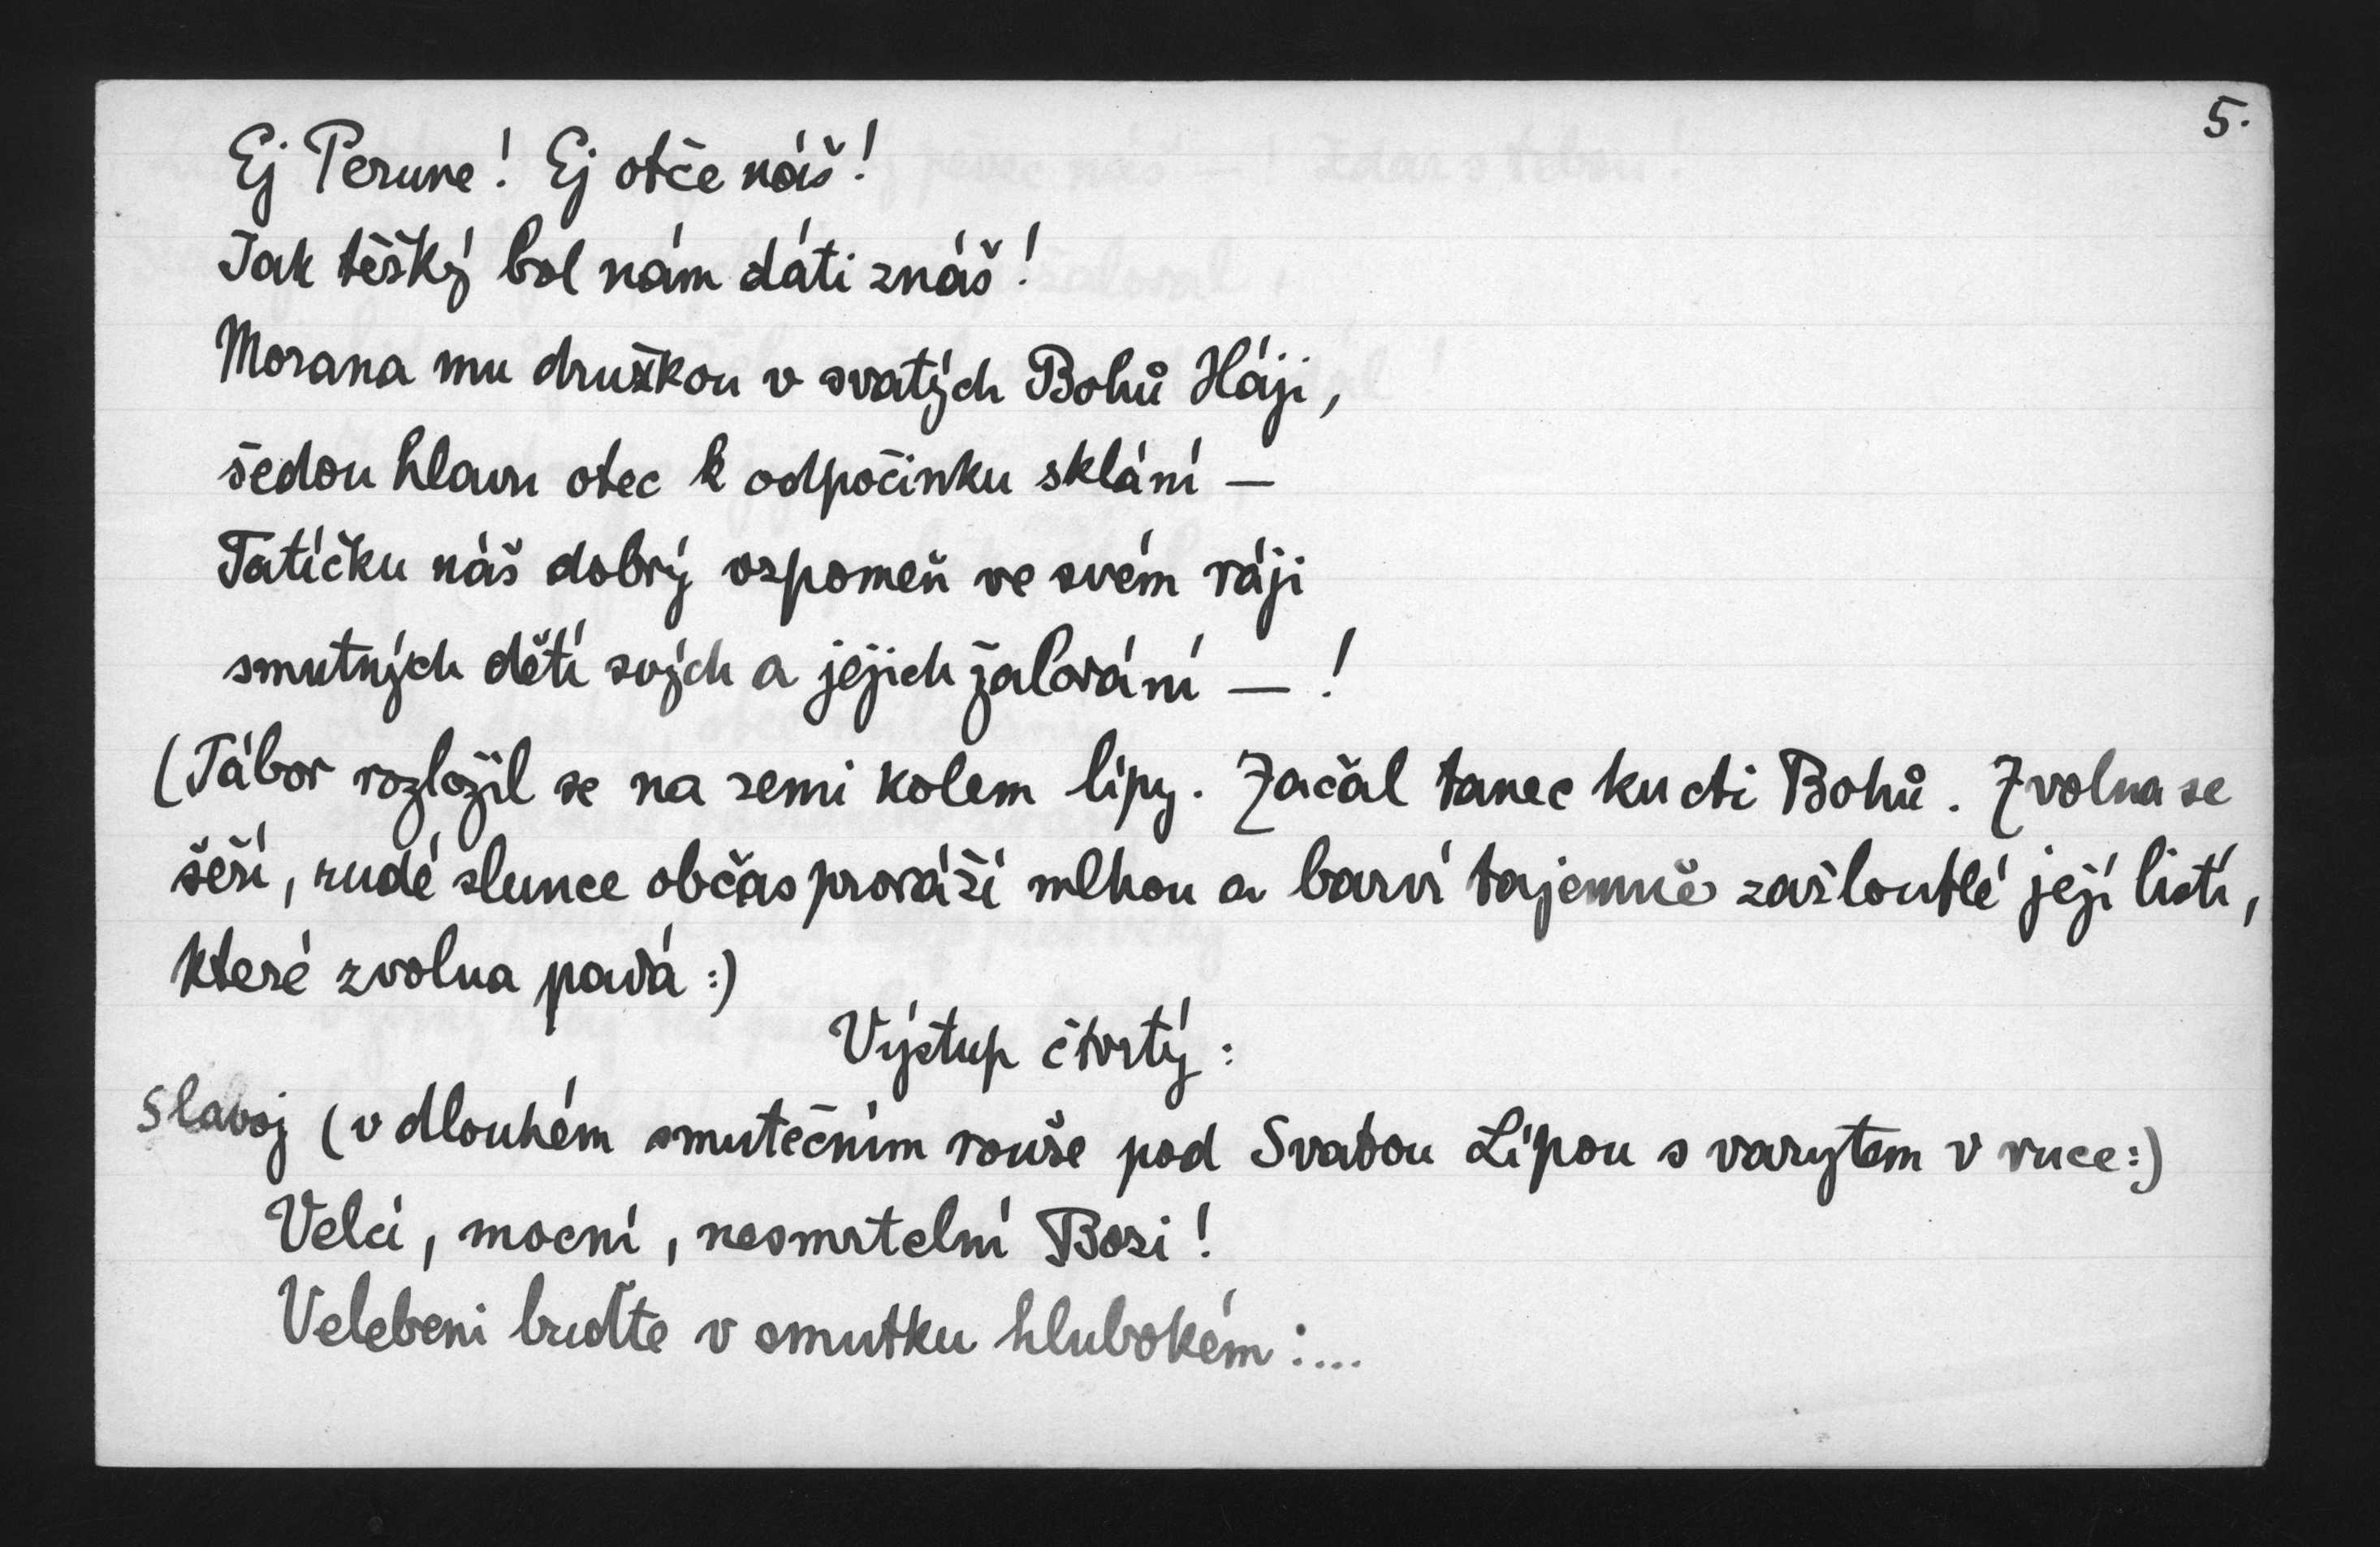 5.
Ej Perune! Ej otče náš!
Jak těžký bol nám dáti znáš!
Morana mu družkou v svatých Bohů Háji,
šedou hlavu otec k odpočinku sklání —
Tatíčku náš dobrý vzpomeň ve svém ráji
smutných dětí svých a jejich žalování — !
(Tábor rozložil se na zemi kolem lípy. Začal tanec ku cti Bohů. Zvolna se
šeří, rudé slunce občas proráží mlhou a barví tajemně zažloutlé její listí,
které zvolna padá :)
Výstup čtvrtý :
Slavoj (v dlouhém smutečním rouše pod Svatou Lípou s varytem v ruce :)
Velcí, mocní, nesmrtelní Bozi!
Velebeni buďte v smutku hlubokém : ...